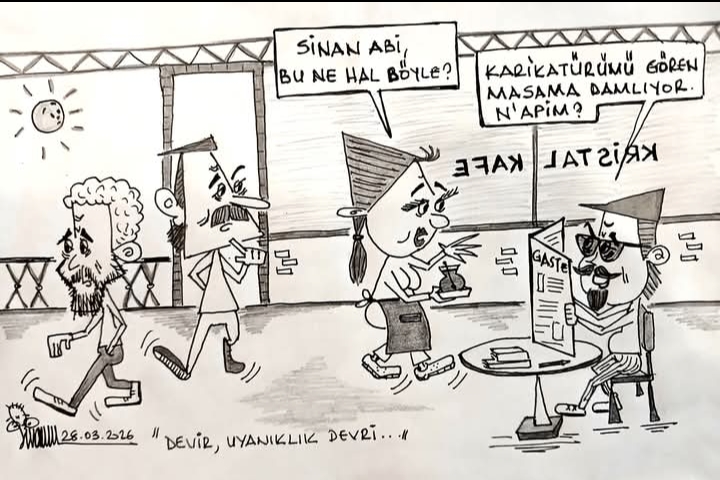 SİNAN ABİ,
BU NE HAL BÖYLE?
KARİKATÜRÜMÜ GÖREN
MASAMA DAMLIYOR.
N'APİM?
KRİSTAL KAFE
GASTE
28.03.2026
" DEVİR, UYANIKLIK DEVRİ..."